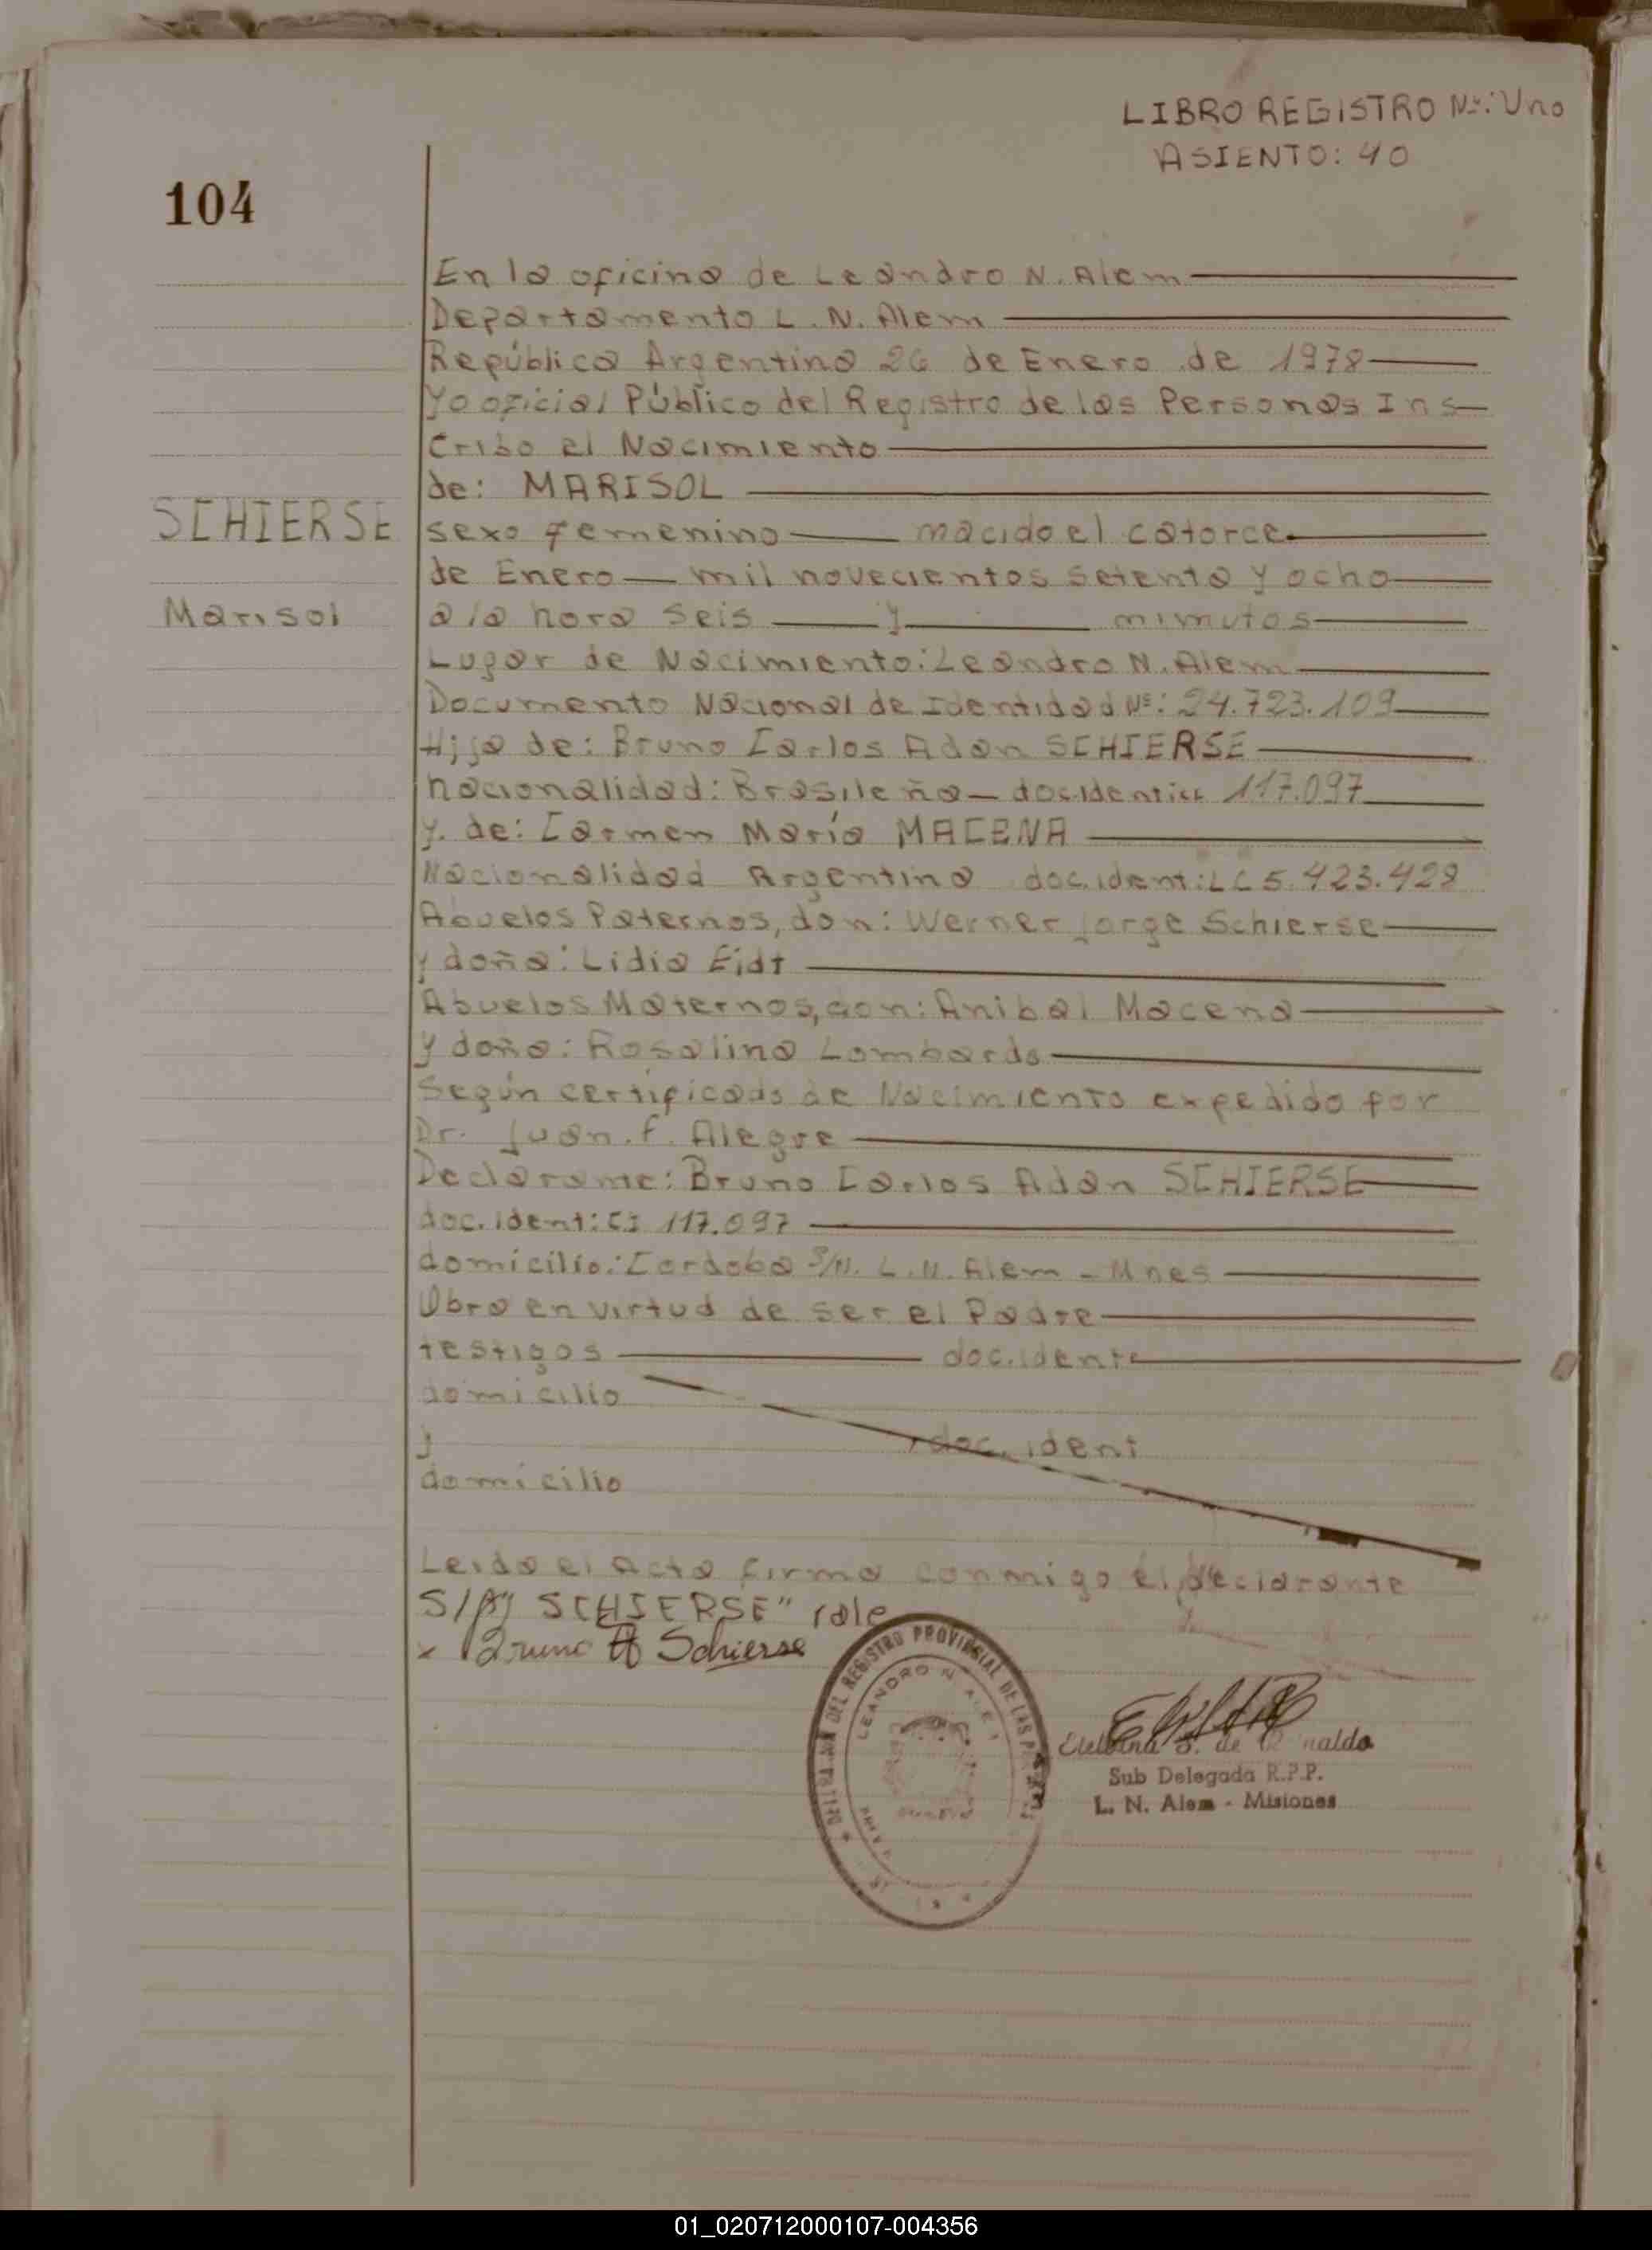 LIBRO REGISTRO Nº: Uno
ASIENTO: 40
104
En la oficina de Leandro N. Alem
Departamento L. N. Alem
República Argentina 26 de Enero de 1978
Yo oficial Público del Registro de las Personas Ins
cribo el Nacimiento
de: MARISOL
SCHIERSE
sexo femenino nacido el catorce
de Enero mil novecientos setenta y ocho
Marisol
a la hora seis y minutos
Lugar de Nacimiento: Leandro N. Alem
Documento Nacional de Identidad Nº: 24.723.109
Hija de: Bruno Carlos Adan SCHIERSE
nacionalidad: Brasileña - doc. 117.097
y de: Carmen María MACENA
Nacionalidad Argentina doc. ident: LC 5.423.429
Abuelos Paternos, don: Werner Jorge Schierse
y doña: Lidia Eidt
Abuelos Maternos, don: Anibal Macena
y doña: Rosalina Lombardo
Según certificado de Nacimiento expedido por
Dr. Juan. F. Alegre
Declarame: Bruno Carlos Adan SCHIERSE
doc. ident: CI 117.097
domicilio: Cordoba S/N. L.N. Alem - Mnes
Obra en virtud de ser el Padre
testigos doc. idente
domicilio
y doc. ident
domicilio
Leida el Acta firma conmigo el declarante
S/A) SCHIERSE" vale
x Bruno A Schierse
DEL REGISTRO PROVINCIAL DE LAS
LEANDRO N. ALEM
S. de
Sub Delegada R.P.P.
L. N. Alem - Misiones
01_020712000107-004356